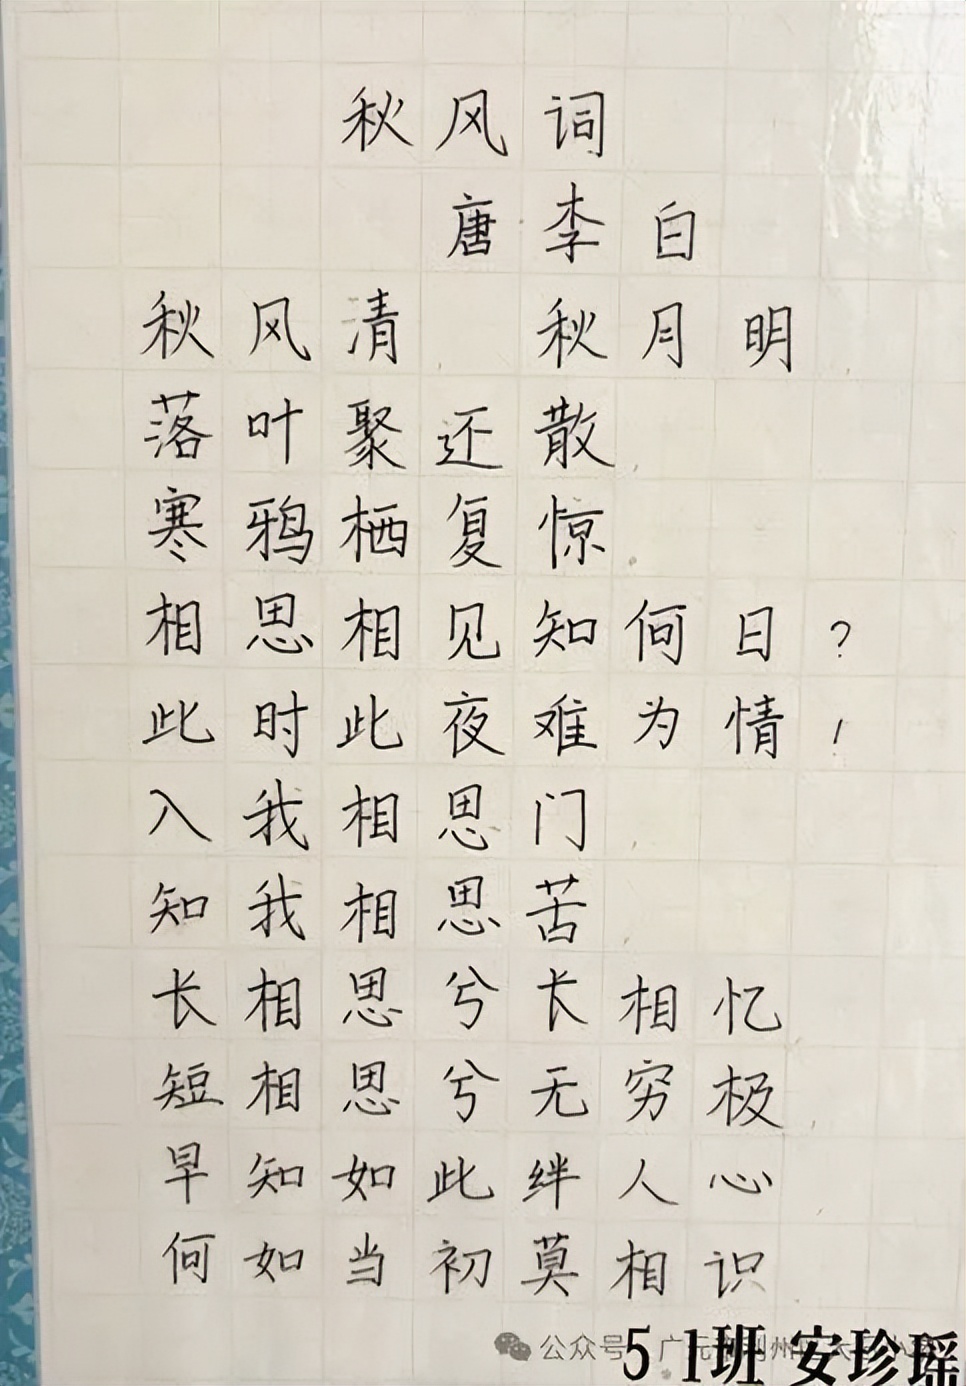 秋风词
唐李白
秋风清 秋月明
落叶聚还散
寒鸦栖复惊
相思相见知何日?
此时此夜难为情!
入我相思门
知我相思苦
长相思兮长相忆
短相思兮无穷极
早知如此绊人心
何如当初莫相识
公众号
5 1班 安珍瑶